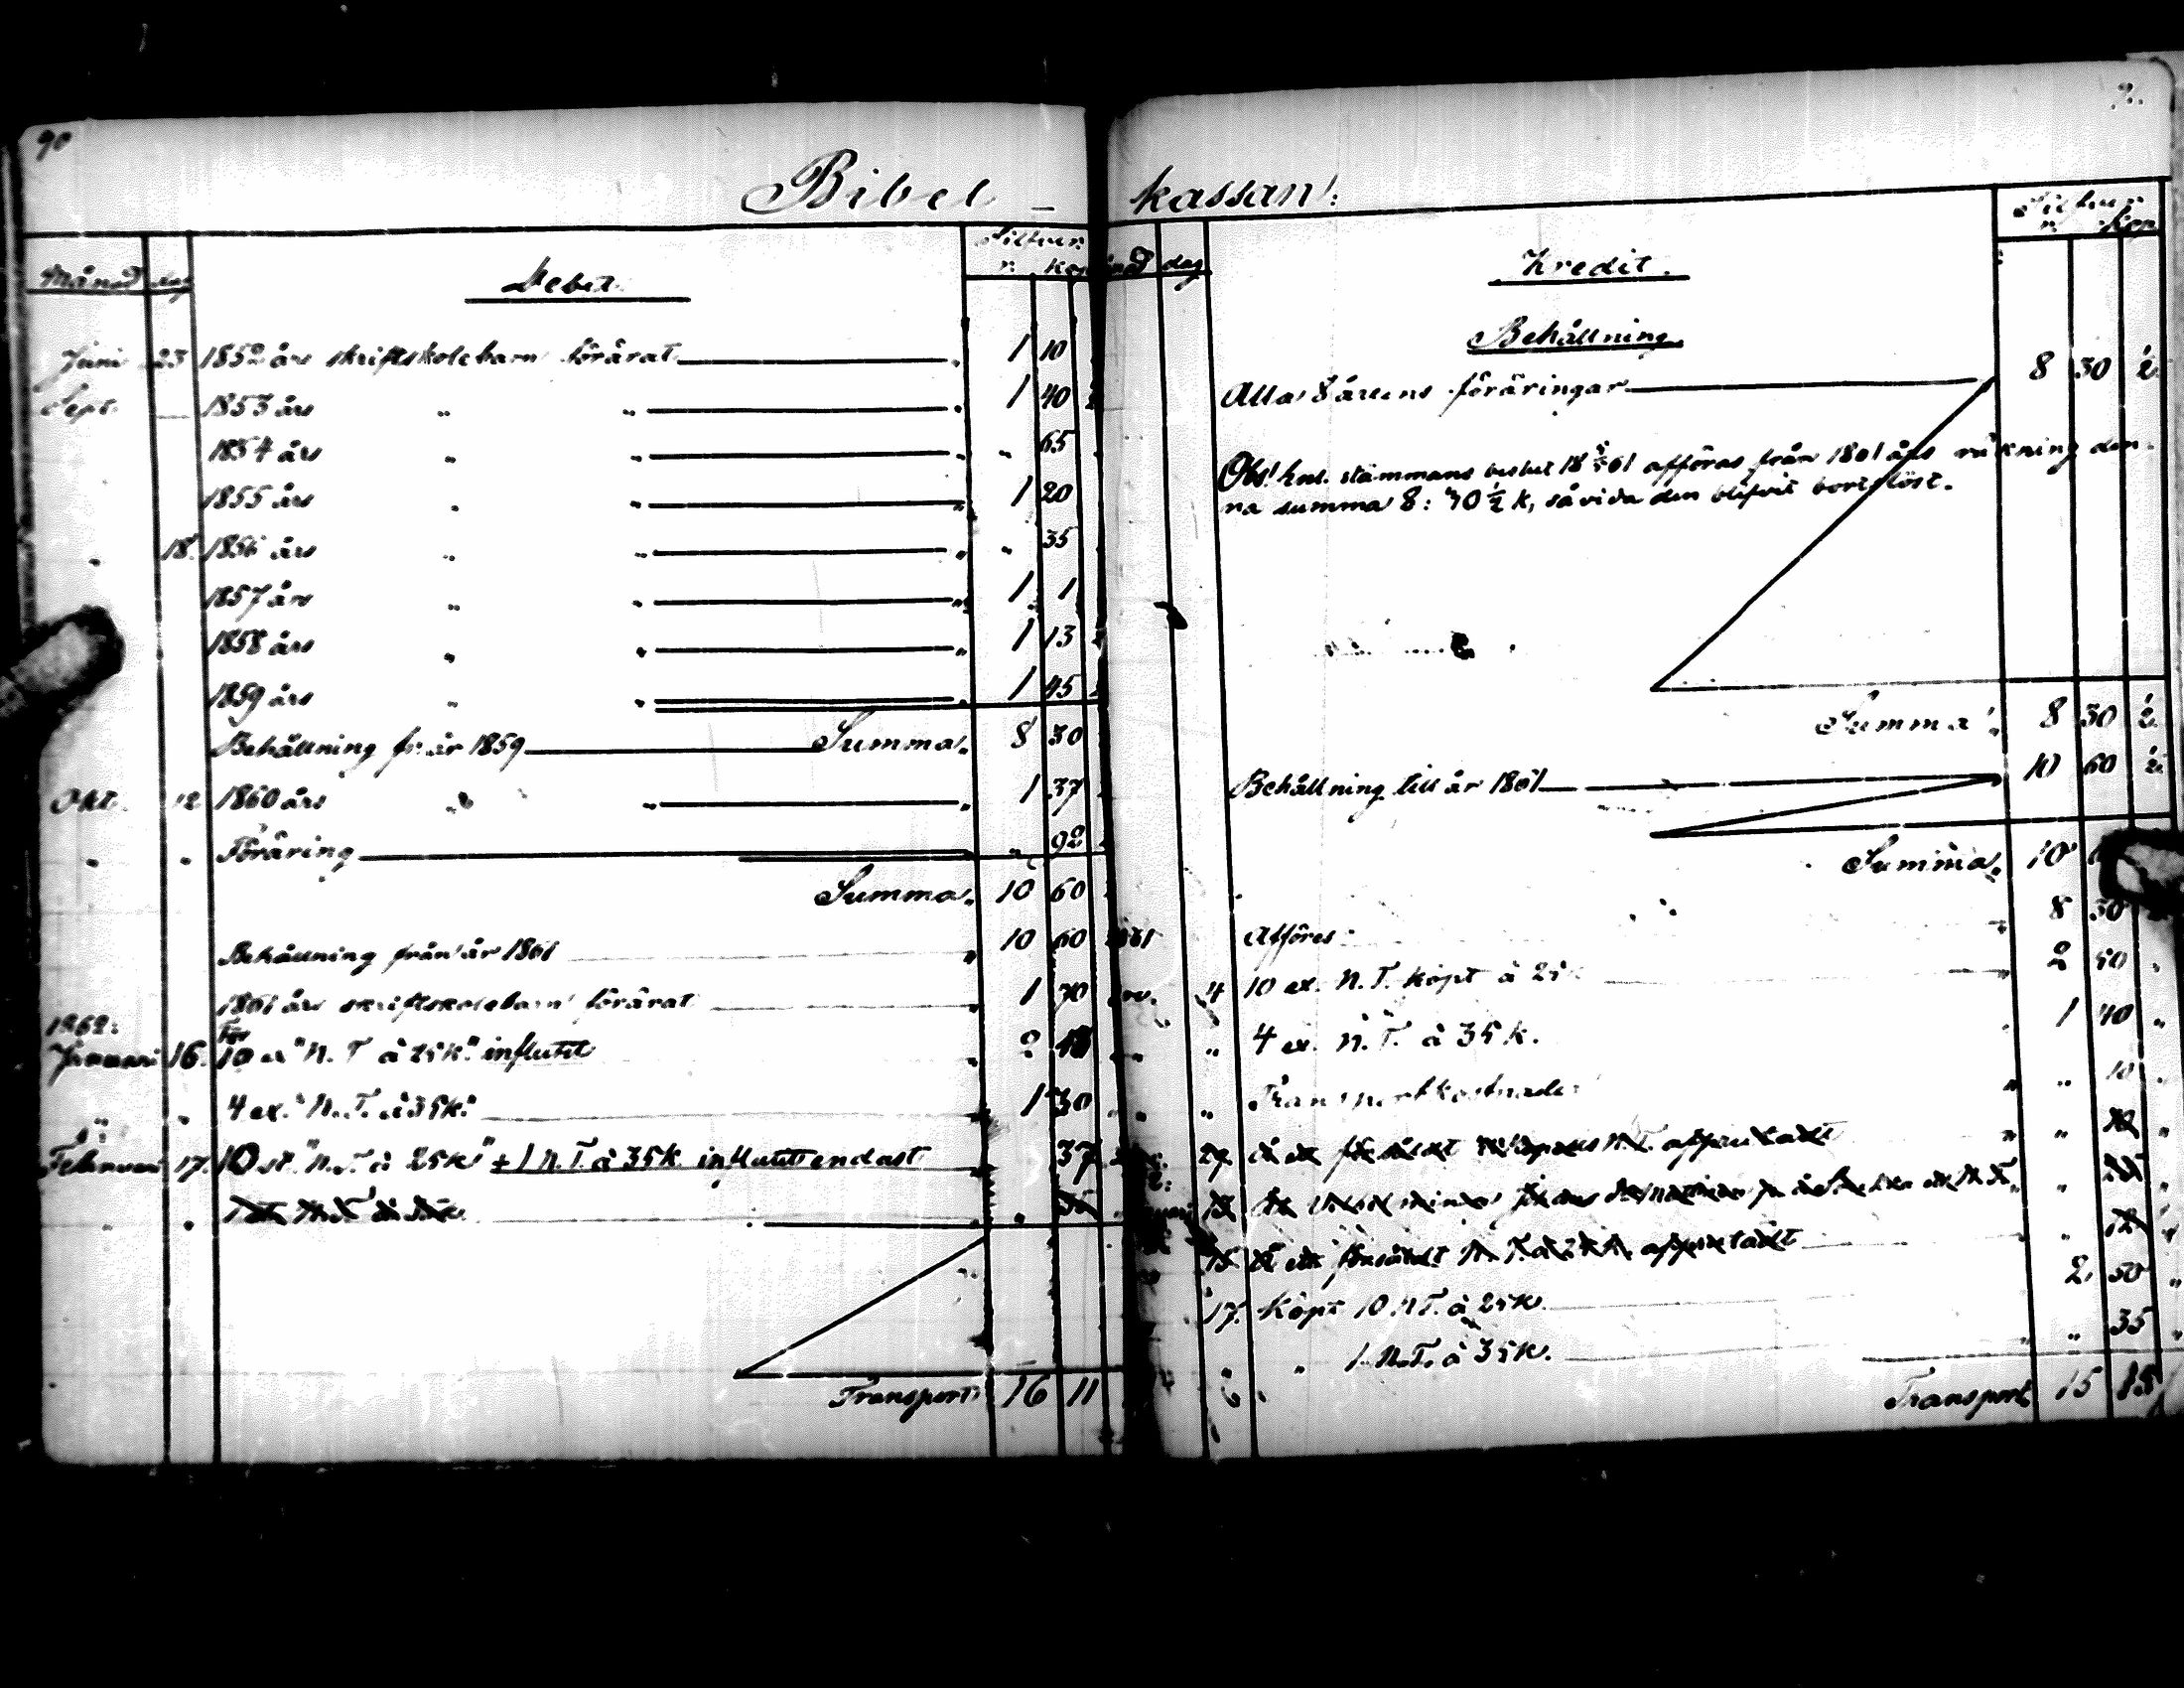 90
Bibel - kassan:
Månad dag Debet Silfver r. kop
Juni 23 1852 års skriftskolebarn förärat 1 10
Sept. 1853 års " " 1 40
1854 års " " " 65
1855 års " " 1 20
" 18 1856 års " " " 35
1857 års " " 1 1
1858 års " " 1 13
1859 års " " 1 45
Behållning fr. år 1859 Summa 8 30
Okt. 12 1860 års " " 1 37
" " Föräring " 92
Summa 10 60
Behållning från år 1861 10 60
1861 års skriftskolebarn förärat 1 30
1862:
Januari 16. För 10 ex "N. T. à 25 k." influtit 2
" " 4 ex. "N. T. à 35 k." 1 30
Februari 17. 10 st. "N. T. à 25 k" + 1 N. T. à 35 k. influtit endast 37
Transport 16 11
dag Kredit. Silfver r. kop
Behållning
Alla 8 årens föräringar 8 30 ½
Obs! enl. stämmans beslut 18 61 afföras från 1861 års räkning den-
na summa 8: 30 ½ k, såvida den blifvit bortslöst.
Summa 8 30 ½
Behållning till år 1861 10 60 ½
Summa 10
1861 Afföres: 8 30
4 10 ex. N. T. köpt à 25 k 2 50
" 4 ex. N. T. à 35 k. 1 40
" Transportkostnader " 10
17. Köpt 10 N T. à 25 k. 2 50
" " 1 N. T. à 35 k. " 35
Transport 15